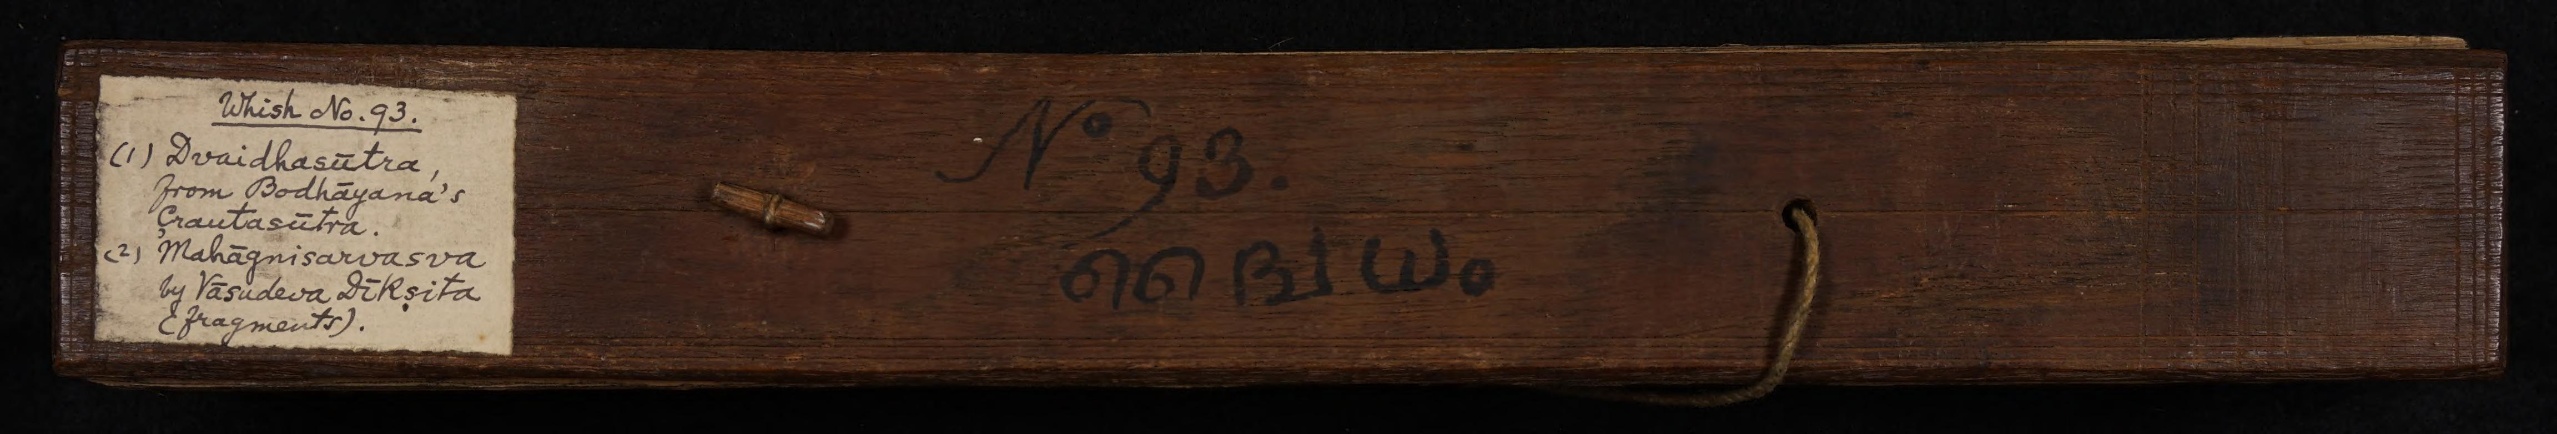 Whish No. 93.
(1) Dvaidhasūtra,
from Bodhāyana's
Çrautasūtra.
(2) Mahāgnisarvasva
by Vāsudeva Dīkṣita
(fragments).
Nº 93.
ദ്വൈധം